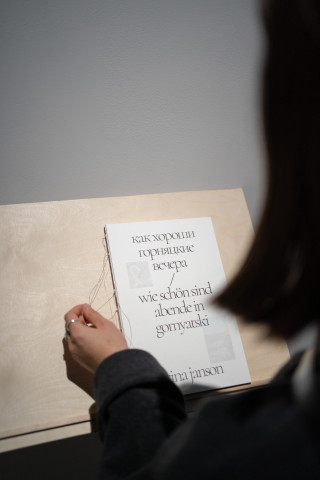 как хороши
горняцкие
вечера
/
wie schön sind
abende in
gornyatski
janson